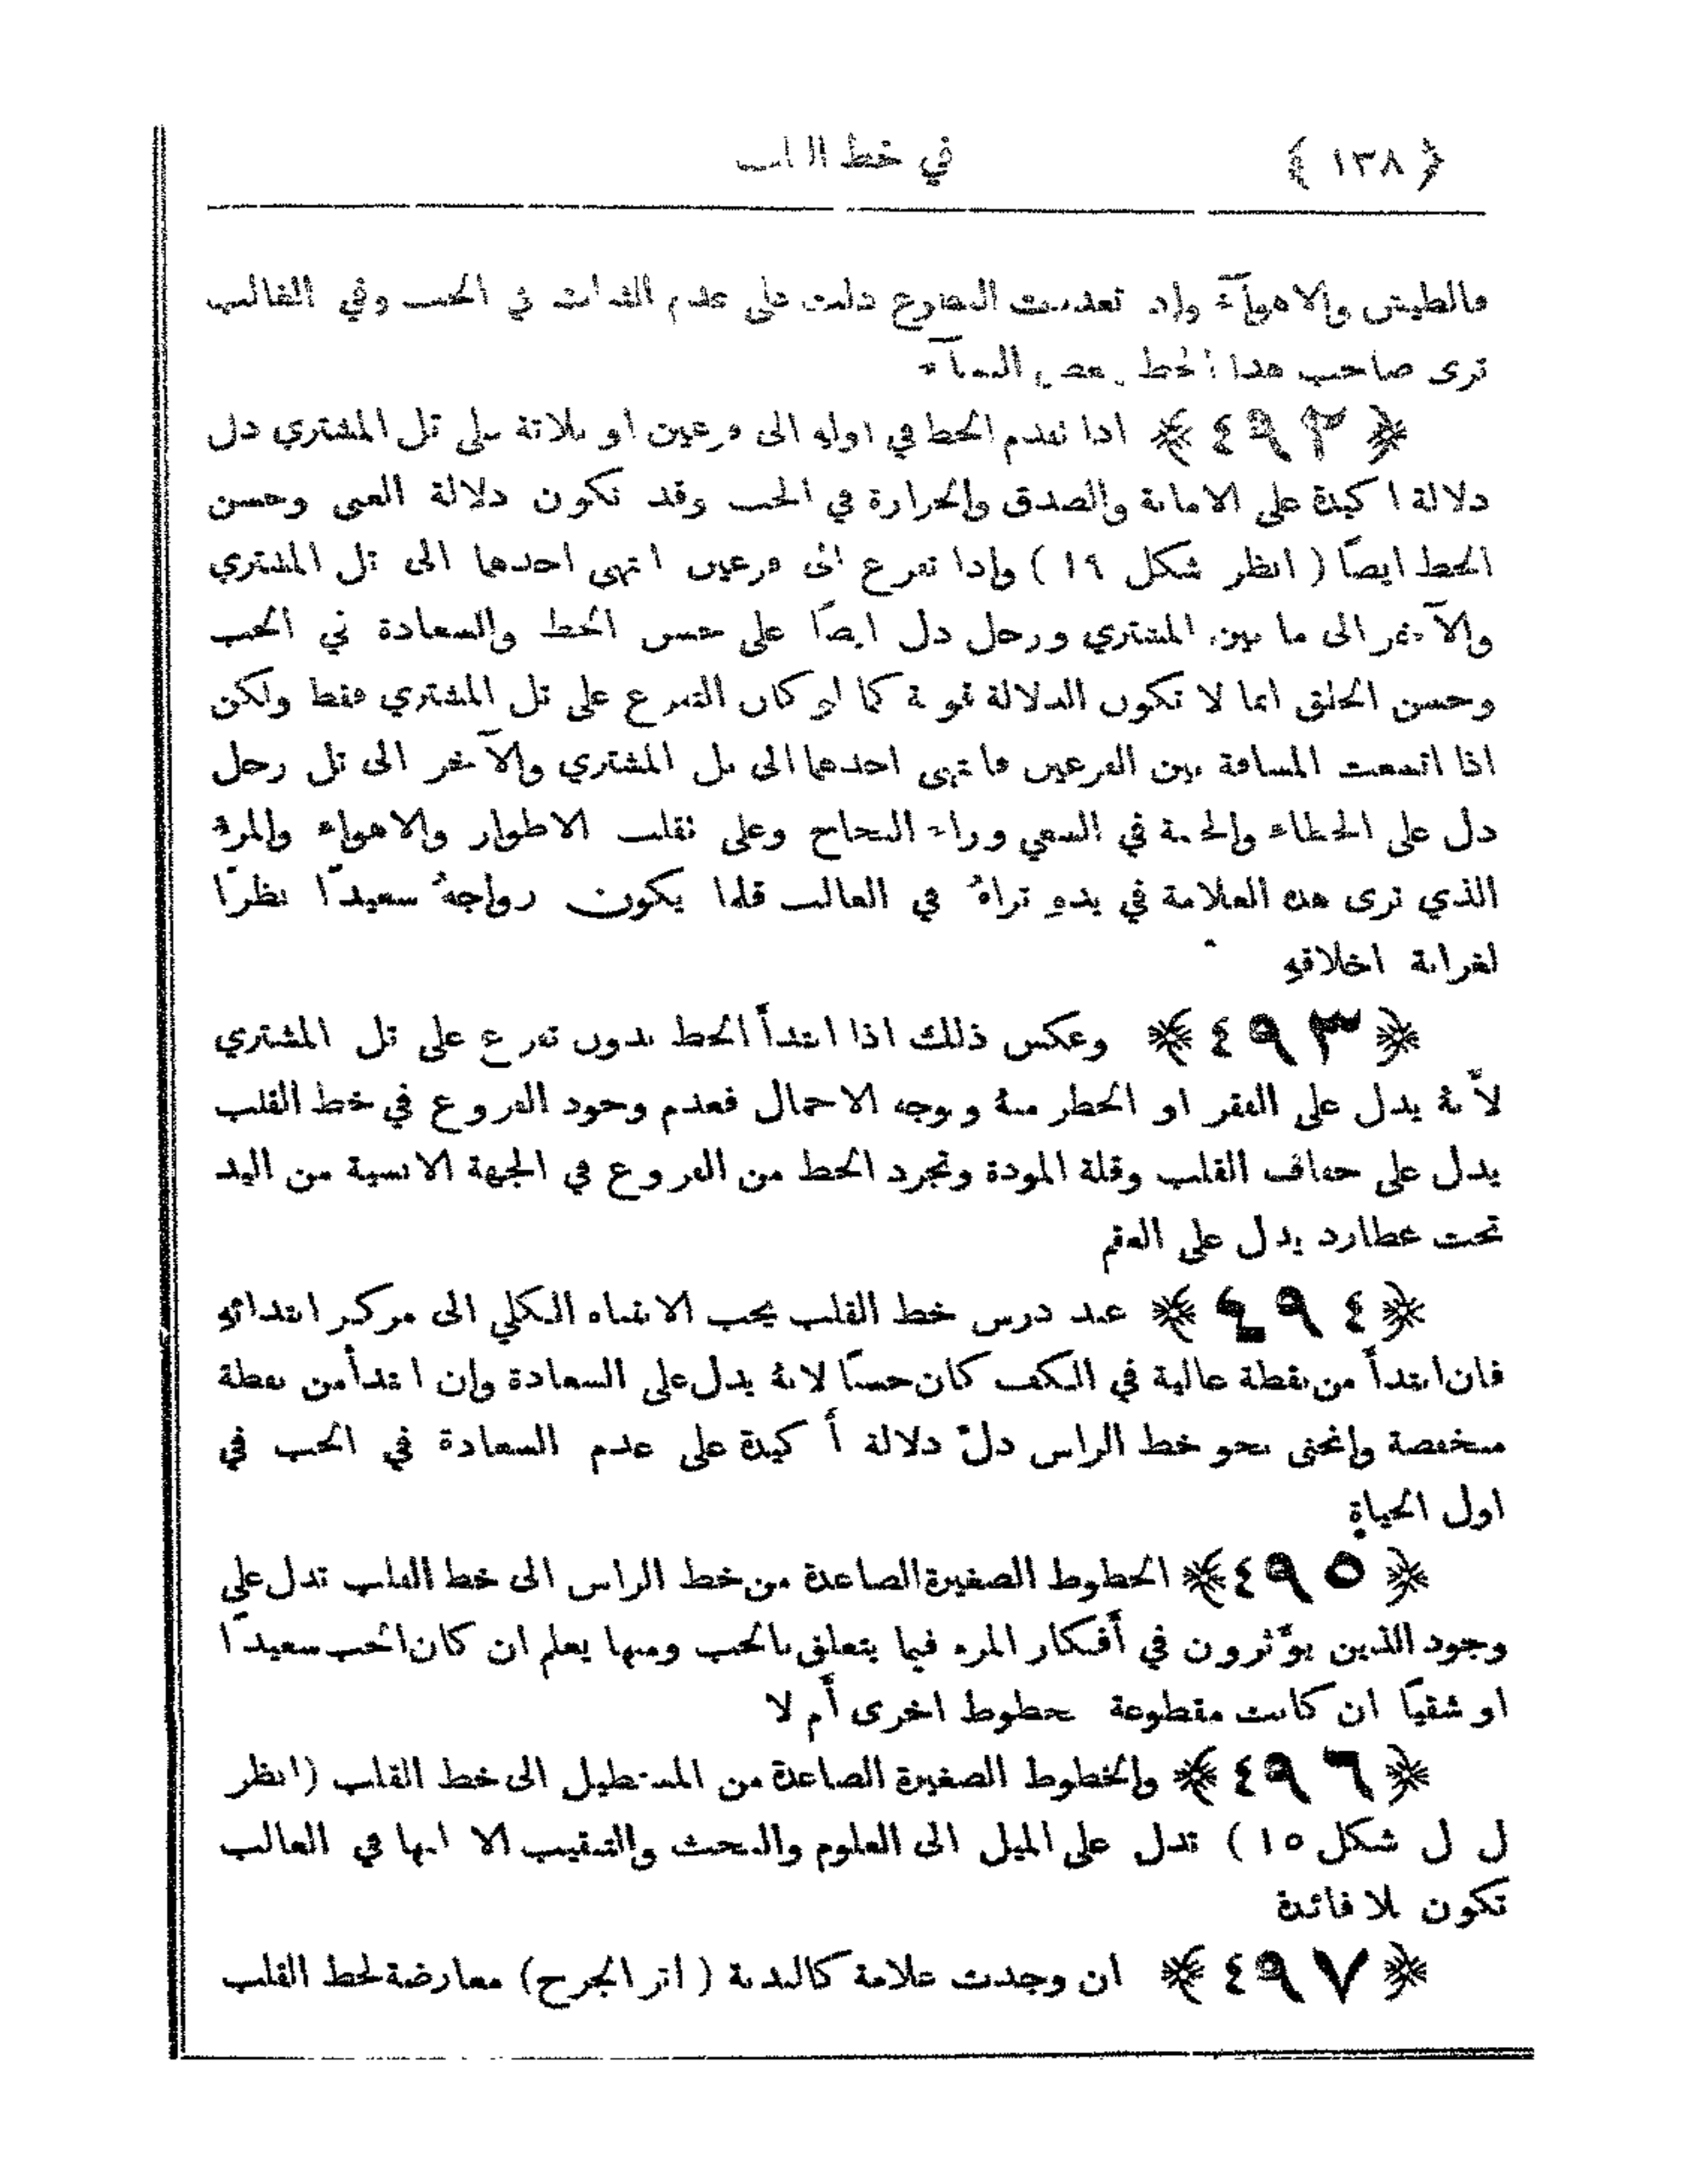 ﴿ ١٣٨ ﴾ في خط القلب
فالطيش والاهوآء وإذ تعددت الفروع دلت على عدم الثبات في الحب وفي الغالب
ترى صاحب هذا الخط يبغض النسآء
﴿ ٤٩٢ ﴾ اذا انقسم الخط في اوله الى فرعين او ثلاثة على تل المشتري دل
دلالة اكيدة على الامانة والصدق والحرارة في الحب وقد تكون دلالة الغنى وحسن
الحظ ايضًا ( انظر شكل ١٩ ) وإذا تفرع الى فرعين انتهى احدهما الى تل المشتري
والآخر الى ما بين المشتري وزحل دل ايضًا على حسن الحظ والسعادة في الحب
وحسن الخلق انما لا تكون الدلالة قوية كما لو كان التفرع على تل المشتري فقط ولكن
اذا اتسعت المسافة بين الفرعين فانتهى احدهما الى تل المشتري والآخر الى تل زحل
دل على الخطاء والخيبة في السعي وراء النجاح وعلى تقلب الاطوار والاهواء والمرء
الذي ترى هذه العلامة في يدهِ تراهُ في الغالب قلما يكون زواجهُ سعيدًا نظرًا
لغرابة اخلاقهِ
﴿ ٤٩٣ ﴾ وعكس ذلك اذا ابتدأ الخط بدون تفرع على تل المشتري
لأنهُ يدل على الفقر او الخطر منهُ وبوجه الاجمال فعدم وجود الفروع في خط القلب
يدل على جفاف القلب وقلة المودة وتجرد الخط من الفروع في الجهة الانسية من اليد
تحت عطارد يدل على العقم
﴿ ٤٩٤ ﴾ عند درس خط القلب يجب الانتباه الكلي الى مركز ابتدائهِ
فان ابتدأ من نقطة عالية في الكف كان حسنًا لانهُ يدل على السعادة وإن ابتدأ من نقطة
منخفضة وانحنى نحو خط الراس دلَّ دلالة أكيدة على عدم السعادة في الحب في
اول الحياةِ
﴿ ٤٩٥ ﴾ الخطوط الصغيرة الصاعدة من خط الراس الى خط القلب تدل على
وجود الذين يؤّثرون في أفكار المرء فيما يتعلق بالحب ومنها يعلم ان كان الحب سعيدًا
او شقيًا ان كانت مقطوعة بخطوط اخرى أم لا
﴿ ٤٩٦ ﴾ والخطوط الصغيرة الصاعدة من المستطيل الى خط القلب (انظر
ل ل شكل ١٥ ) تدل على الميل الى العلوم والبحث والتنقيب الا انها في الغالب
تكون بلا فائدة
﴿ ٤٩٧ ﴾ ان وجدت علامة كالندبة ( اثر الجرح) معارضة لخط القلب